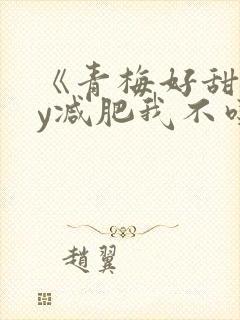 《青梅好甜
y减肥我不
趙翼